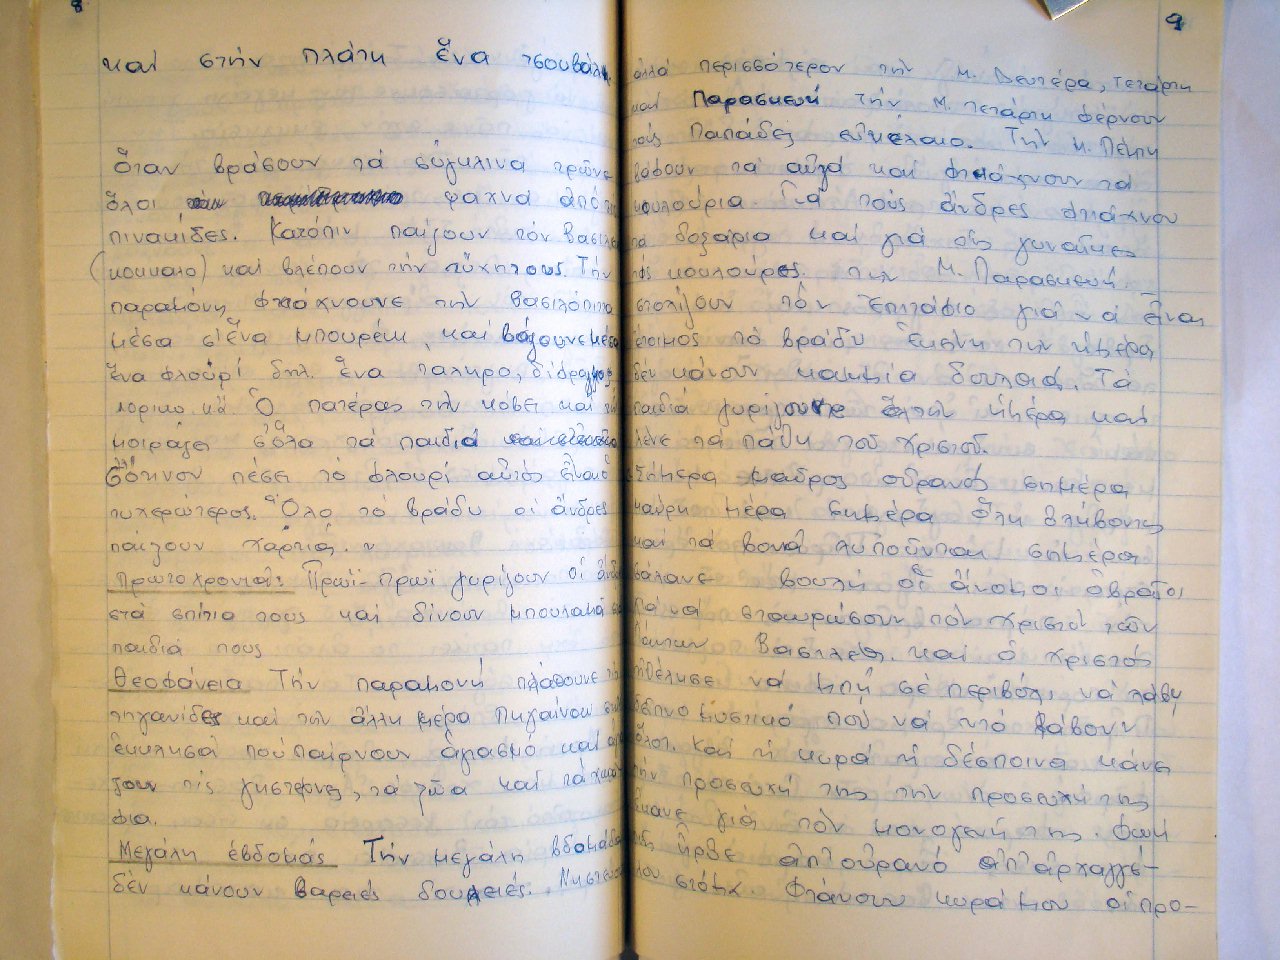 8
καί στήν πλάτη ἕνα τσουβάλι
ὅταν βράσουν τά σύγκλινα τρῶνε
ὅλοι ψαχνά ἀπό
πινακίδες. Κατόπιν παίζουν τόν βασιλιᾶ
(κοκκαλο) καί βλέπουν τήν τύχη τους. Τήν
παραμόνη φτιάχνουνε τήν βασιλόπιτα
μέσα σ'ἕνα μπουρέκι, καί βάζουνε μέσα
ἕνα φλουρί δηλ. ἕνα τάληρο, δίδραχμο
Ὁ πατέρας τήν κόβει καί τήν
μοιράζει σ'ὅλα τά παιδιά
Σ' ὅποινον πέσει τό φλουρί αὐτός εἶναι ὁ
τυχερώτερος. Ὅλο τό βράδυ οἱ ἄνδρες
παίζουν χαρτιά.
Πρωτοχρονιά: Πρωΐ-πρωΐ γυρίζουν οἱ ἄνδρες
στά σπίτια τους καί δίνουν μπουλαμά στά
παιδιά τους
Θεοφάνεια Τήν παραμονή πλάθουνε τίς
τηγανίδες καί τήν ἄλλη μέρα πηγαίνουν στήν
ἐκκλησιά πού παίρνουν ἁγιασμό καί ἁγιά-
ζουν τίς γιστέρνες, τά ζῶα καί τά χωρά-
φια.
Μεγάλη ἑβδομάς Τήν μεγάλη βδομάδα
δέν κάνουν βαρειές δουλειές. Νηστεύουν
9
ἀλλά περισσότερον τήν Μ. Δευτέρα, Τετάρτη
καί Παρασκευή τήν Μ. Τετάρτη φέρνουν
τούς Παπάδες εὐκέλαιο. Τήν Μ. Πέμπτη
βάφουν τά αὐγά καί φτιάχνουν τά
κουλούρια. Γιά τούς ἄνδρες φτιάχνουν
τά δοξάρια καί γιά τίς γυναῖκες
τίς κουλούρες. Τήν Μ. Παρασκευή
στολίζουν τόν Ἐπιτάφιο γιά νά εἶναι
ἕτοιμος τό βράδυ Ἐκείνη τήν ἡμέρα
δέν κάνουν καμμία δουλειά. Τά
παιδιά γυρίζουνε ὅλη τήν ἡμέρα καί
λένε τά πάθη τοῦ Χριστοῦ.
Σήμερα μαῦρος οὐρανός σήμερα
μαύρη μέρα σήμερα ὅλοι θλίβονται
καί τά βουνά λυποῦνται σήμερα
βάλανε βουλή οἱ ἄνομοι ὁβραῖοι
Γιά νά σταυρώσουν τόν Χριστό τῶν
Πάντων Βασιλέα. Καί ὁ Χριστός
ἠθέλησε νά μπῆ σέ περιβόλι νά λάβη
δεῖπνο μυστικό πού νά τό λάβουν
ὅλοι. Καί ἡ κυρά ἡ δέσποινα κάνει
τήν προσευχή της τήν προσευχή της
ἔκανε γιά τόν μονογενή της. Φωνή
τῆς ἦρθε ἀπ'οὐρανό ἀπ'ἀρχαγγέ-
λου στόμα. Φτάνουν κυρά μου οἱ προ-